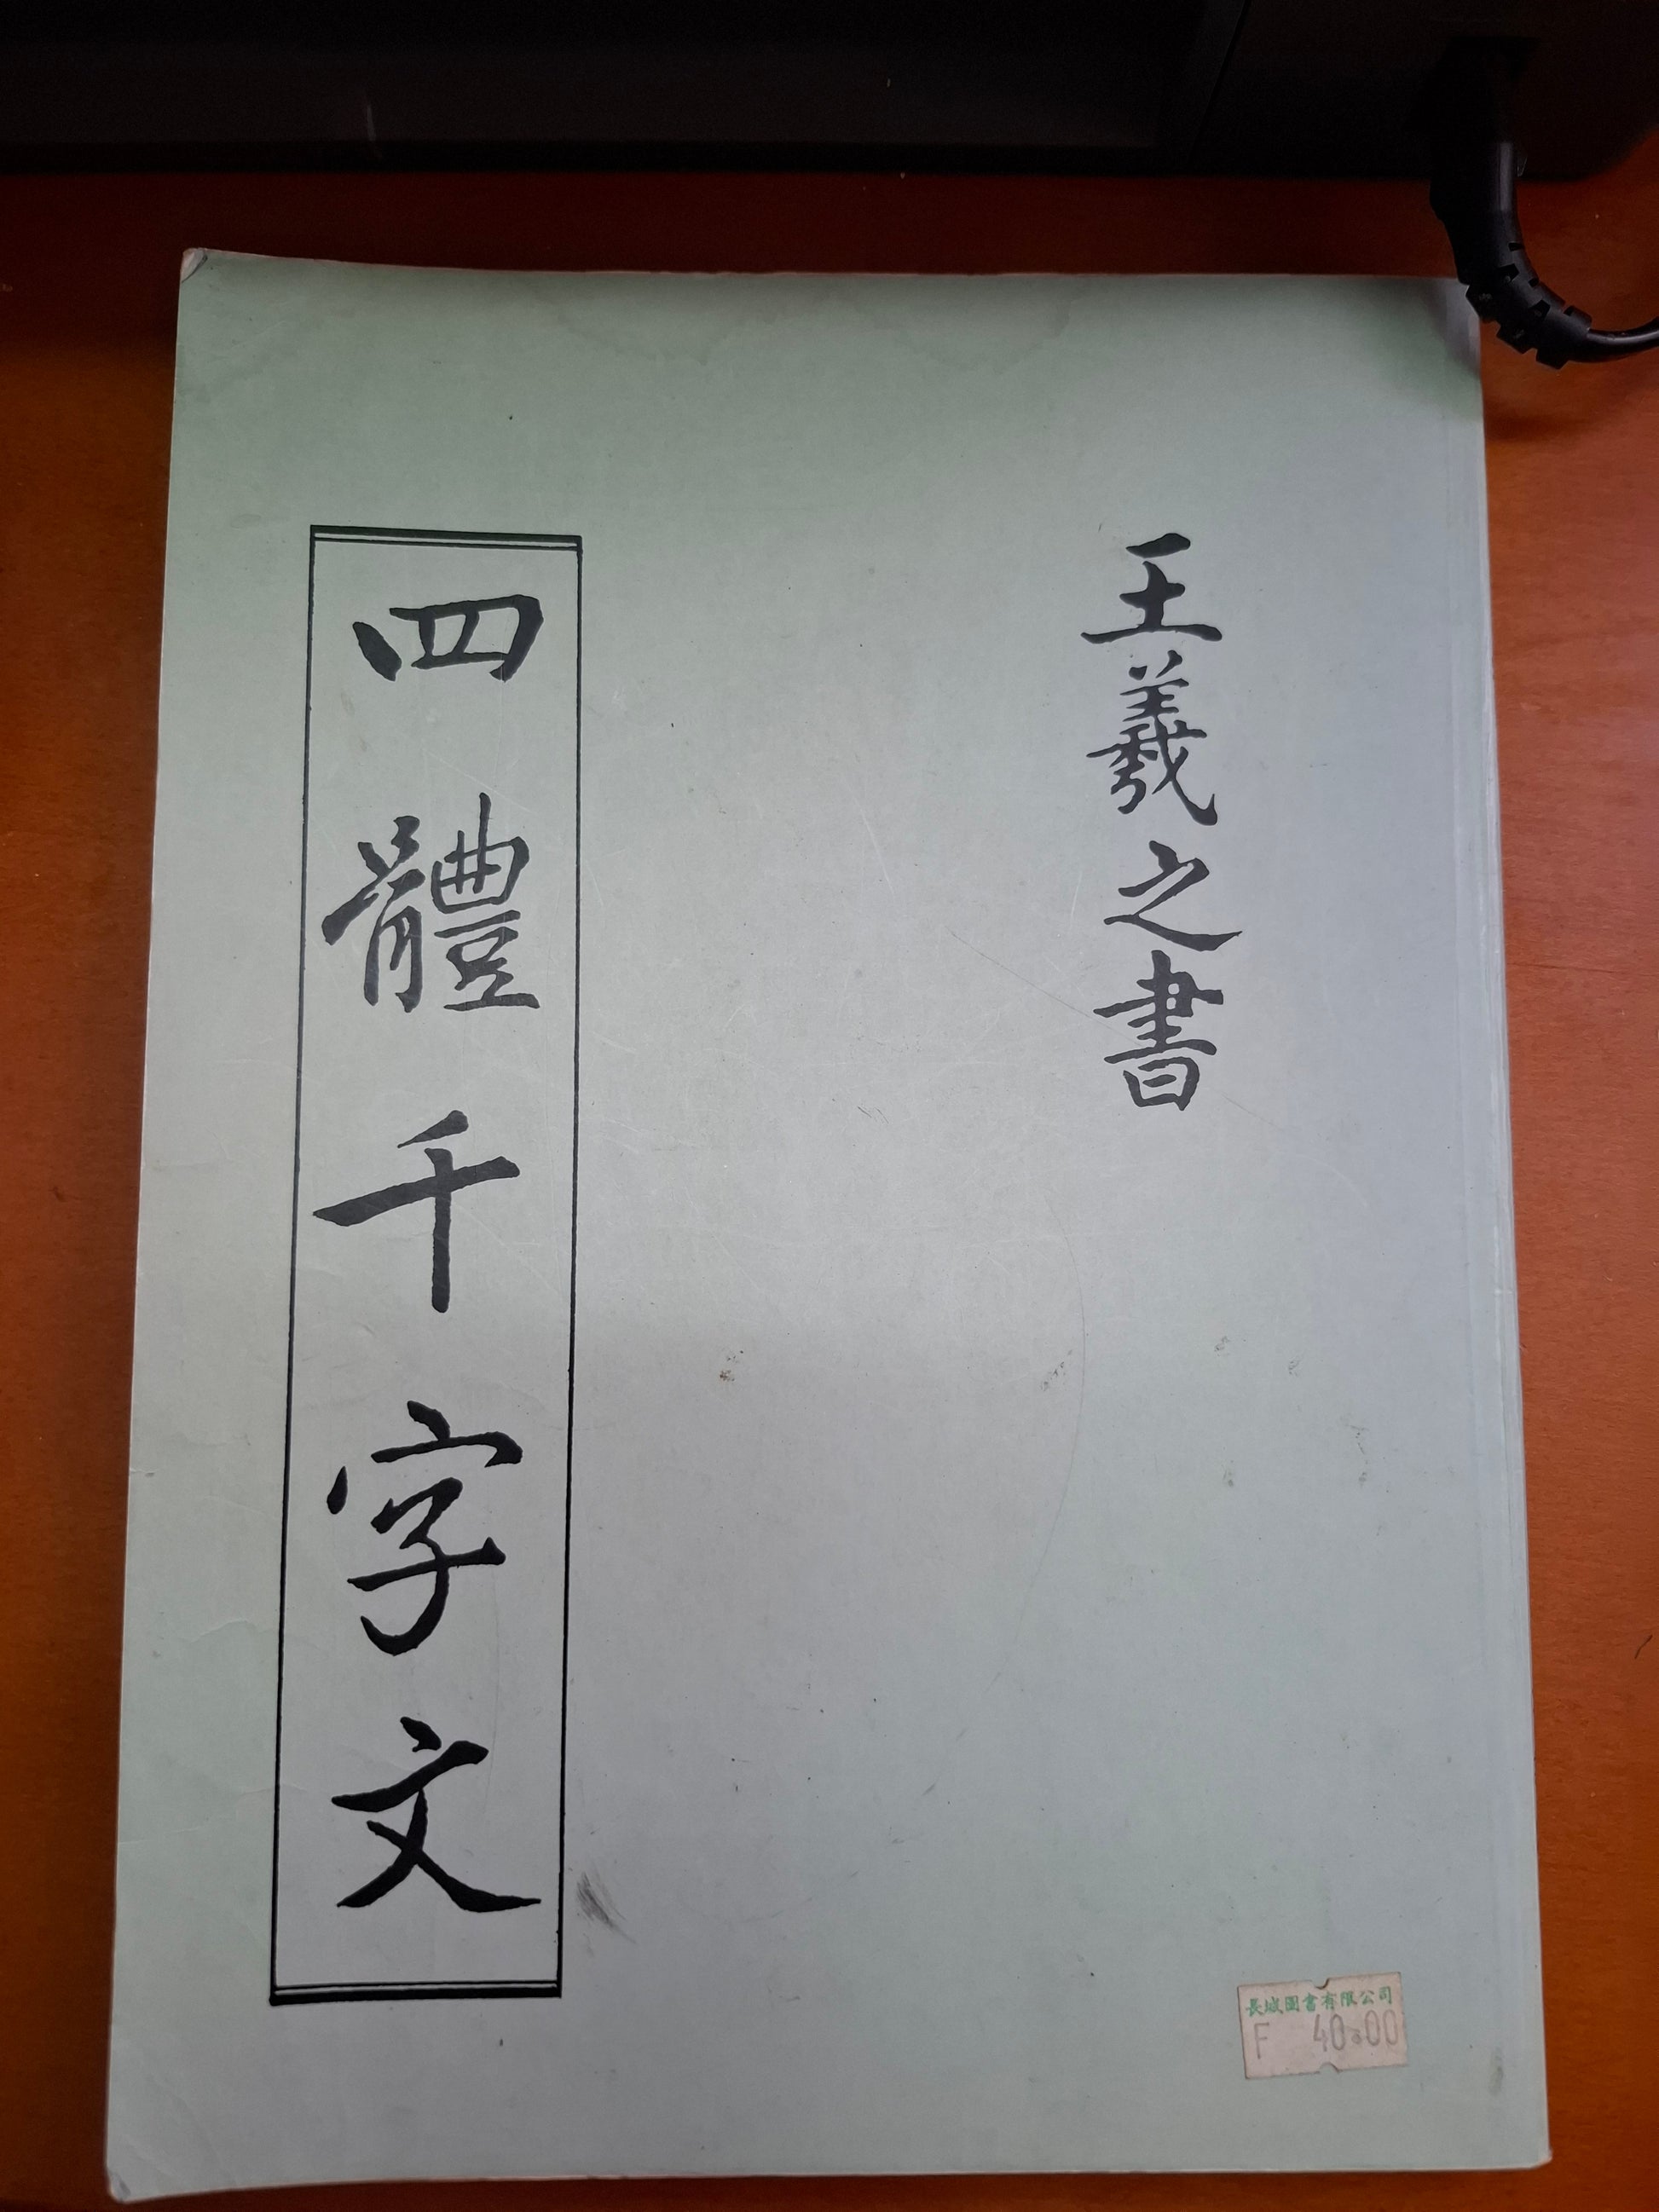 王羲之書
四體千字文
長城圖書有限公司
F 40.00